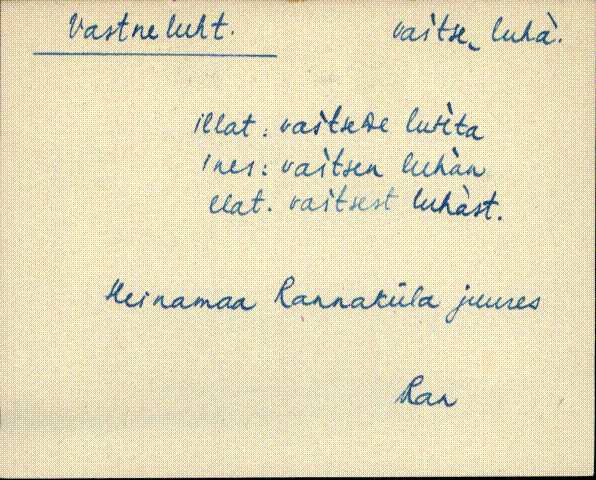 Vastneluht. vaitse luhà.
illat: vaitsede luhta
ines: vaitsen luhàn
elat. vaitsest luhàst.
Heinamaa Rannaküla juures
Ran